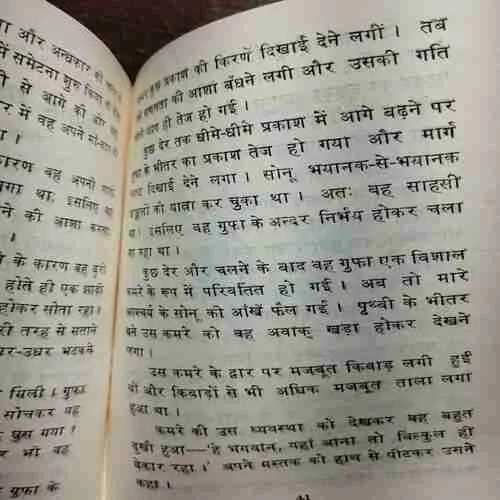 ा और अन्धकार की
में समेटना शुरू किया
ी से आगे की ओर
र में वह अपने
।
कारण वह अपनी
गा था; इसलिए
ने की आशा
।
के कारण वह
होते ही एक झाड़ी
होकर सोता रहा।
री तरह से सताने
घर-उधर भटकने
मिली। गुफा
सोचकर वह
घुस गया।
र भी वह
गुफा के
कुछ प्रकाश की किरणें दिखाई देने लगीं। तब
की आशा बँधने लगी और उसकी गति
आप ही तेज हो गई।
कुछ देर तक धीमे-धीमे प्रकाश में आगे बढ़ने पर
गुफा के भीतर का प्रकाश तेज हो गया और मार्ग
दिखाई देने लगा। सोनू भयानक-से-भयानक
की यात्रा कर चुका था। अतः वह साहसी
था। इसलिए वह गुफा के अन्दर निर्भय होकर चला
जा रहा था।
कुछ देर और चलने के बाद वह गुफा एक विशाल
कमरे के रूप में परिवर्तित हो गई। अब तो मारे
आश्चर्य के सोनू की आँखें फैल गईं। पृथ्वी के भीतर
बने उस कमरे को वह अवाक् खड़ा होकर देखने
लगा।
उस कमरे के द्वार पर मजबूत किवाड़ लगी हुई
थी और किवाड़ों से भी अधिक मजबूत ताला लगा
हुआ था।
कमरे की उस व्यवस्था को देखकर वह बहुत
दुखी हुआ—'हे भगवान, यहां आना तो बिल्कुल ही
बेकार रहा।' अपने मस्तक को हाथ से पीटकर उसने
कहा।